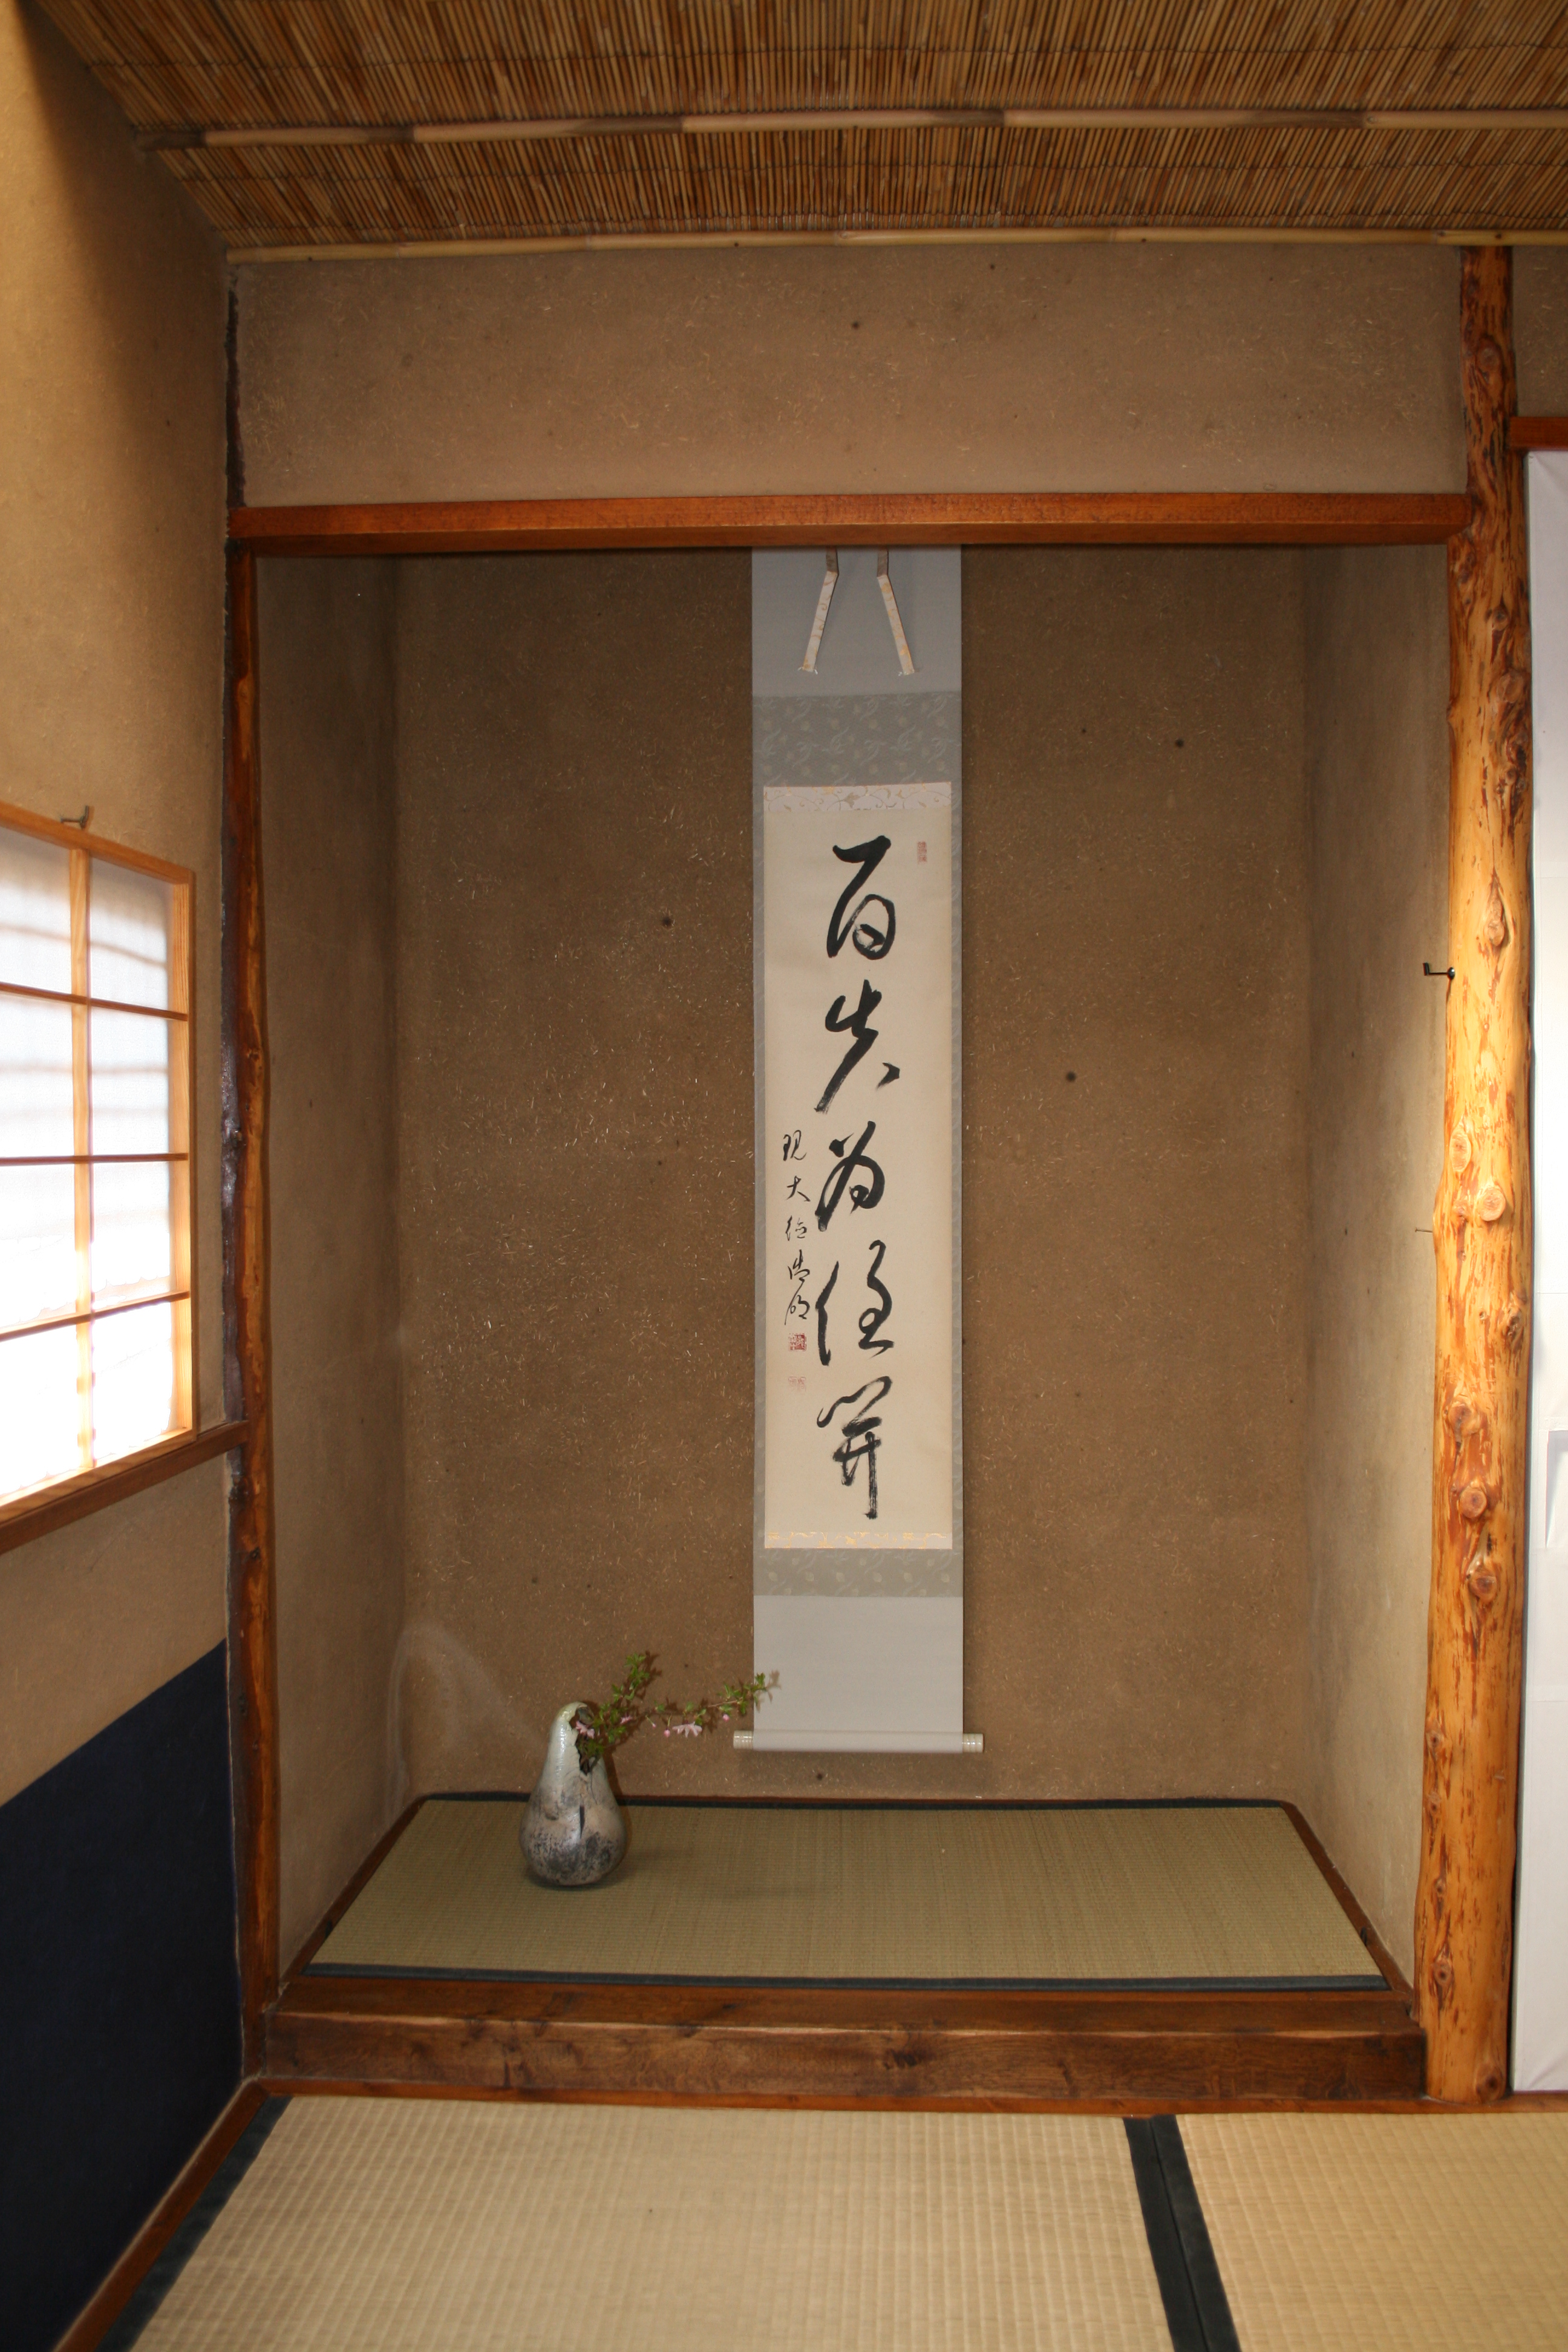 百花為誰開
現大徳